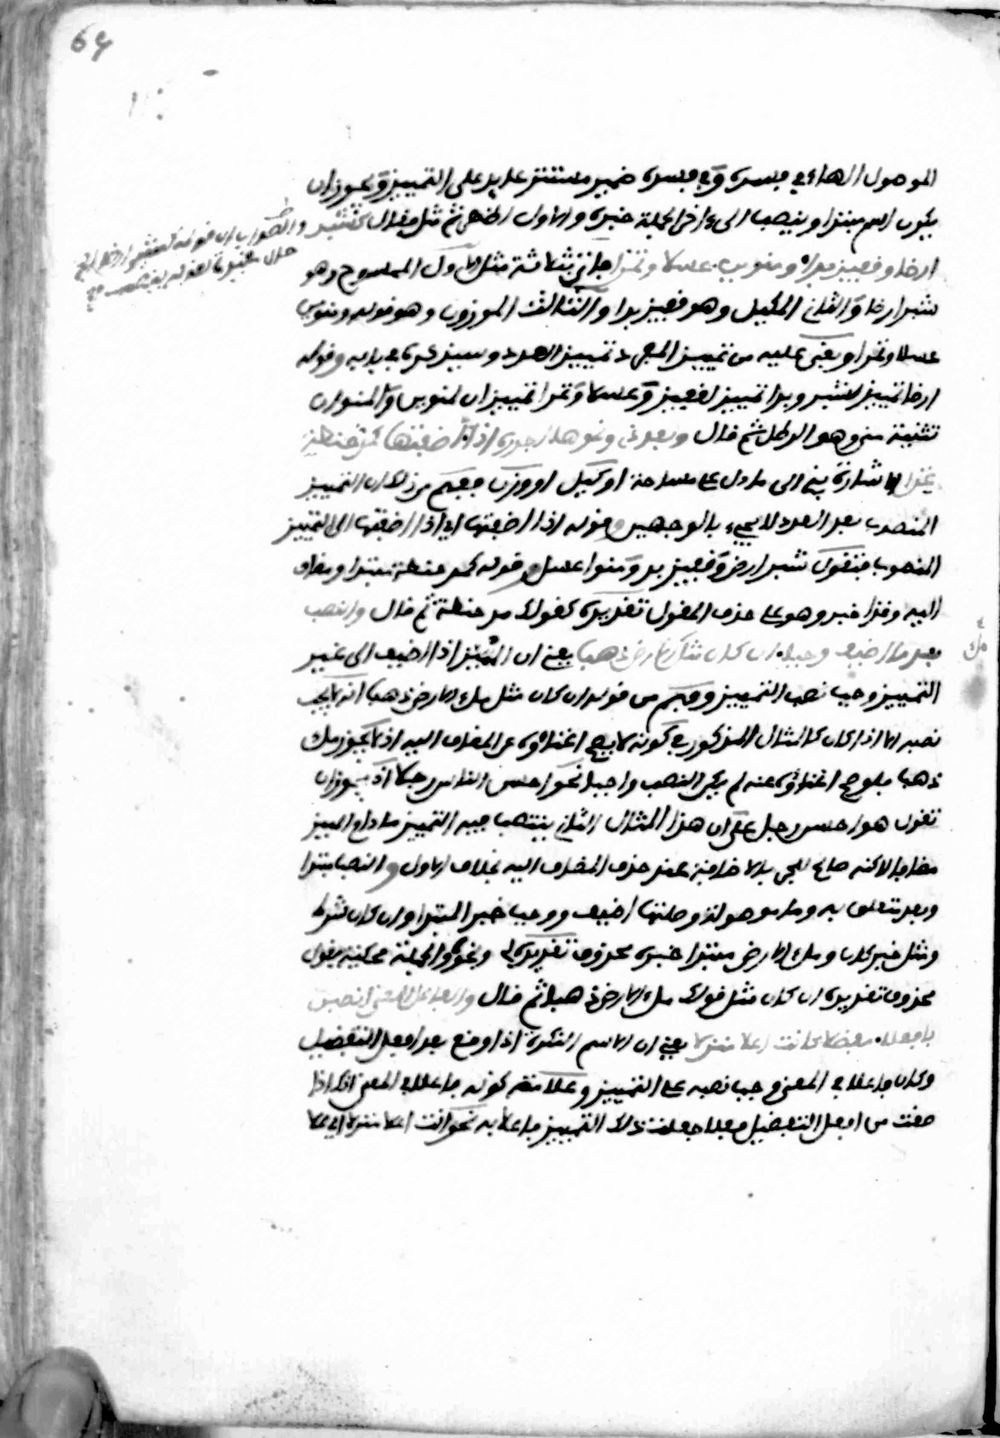 69
الموصول الهاء في مفسره وفي مفسره ضمير مستتر عايد على التمييز ويجوز ان
يكون اسم مبتدا وينصب الى ءاخر الجملة خبره والاول اظهر ثم مثل فقال كشبر
ارضا وقفيز برا ومنوين عسلا وتمرا فاتى بثلاثة مثل الاول الممسوح وهو
شبر ارضا والثاني المكيل وهو قفيز برا والثالث الموزون وهو قوله ومنوين
عسلا وتمرا وبقي عليه من تمييز المفرد تمييز العدد وسيذكره في بابه وقوله
ارضا تمييز لشبر وبرا تمييز لقفيز وعسلا وتمرا تمييزان لمنوين والمنوان
تثنية منى وهو الرطل ثم قال وبعد ذي ونحوها اجرره اذا اضفتها كمد حنطة
غذا الاشارة بذي الى ما دل على مساحة او كيل او وزن وفهم من ذلك ان التمييز
المنصوب بعد العدد لا يجيء بالوجهين وقوله اذا اضفتها اي اذا اضفتها الى التمييز
المنصوب فتقول شبر ارض وقفيز بر ومنوا عسل وقوله كمد حنطة مبتدا ومضاف
اليه وغذا خبر وهو على حذف المقول تقديره كقولك مد حنطة ثم قال والنصب
بعد ما اضيف وجبا ان كان مثل ملء الارض ذهبا يعني ان المميز اذا اضيف الى غير
التمييز وجب نصب التمييز وفهم من قوله ان كان مثل ملء الارض ذهبا انه لا يجب
نصبه الا اذا كان كالمثال المذكور في كونه لا يصح اغناؤه عن المضاف اليه اذ لا يجوز ملء
ذهبا فلو صح اغناؤه عنه لم يكن النصب واجبا نحو احسن الناس رجلا اذ يجوز ان
تقول هو احسن رجل على ان هذا المثال الثاني ينتصب فيه التمييز ما دام المميز
مضافا لاكنه صالح للجر بالاضافة عند حذف المضاف اليه بخلاف الاول والنصب مبتدا
وبعد متعلق به وما موصولة وصلتها اضيف ووجبا خبر المبتدا وان كان شرط
ومثل خبر كان وملء الارض مبتدا خبره محذوف تقديره لي ونحوه والجملة محكية بقول
محذوف تقديره ان كان مثل قولك ملء الارض ذهبا ثم قال والفاعل المعنى انصبن
بافعلا مفضلا كانت اعلا منزلا يعني ان الاسم النكرة اذا وقع بعد افعل التفضيل
وكان فاعلا في المعنى وجب نصبه على التمييز وعلامة كونه فاعلا في المعنى انك اذا
صغت من افعل التفضيل فعلا جعلت ذلك التمييز فاعلا به نحو انت اعلا منزلا اي علا